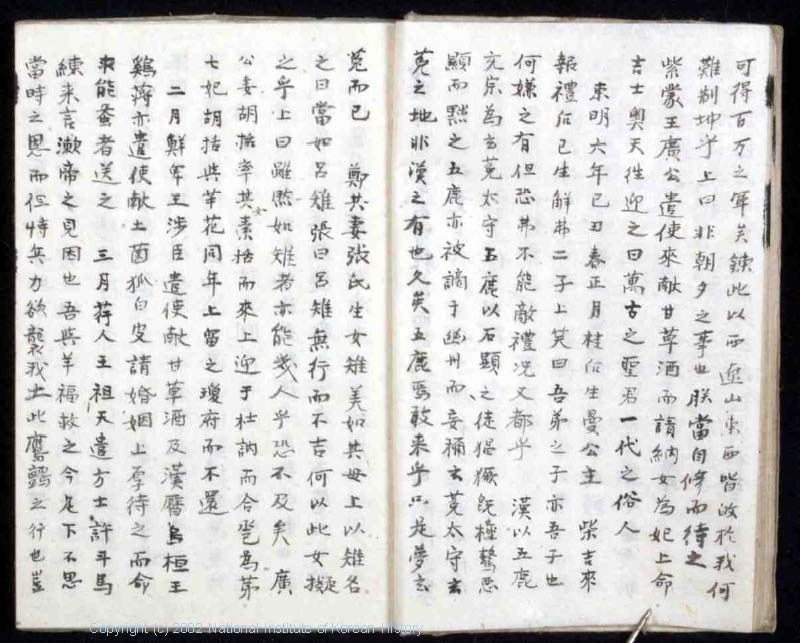 可得百万之軍矣鍊此以西 遼山東西皆改於我何
難制坤乎上曰非朝夕之事也朕當自修而待之
紫蒙王廣公遣使來献甘草酒而請納女為妃上命
吉士奧天徃迎之曰萬古之聖君一代之俗人
東明六年己丑春正月桂后生曼公主 柴吉來
報禮后已生解弗二子上笑曰吾弟之子亦吾子也
何嫌之有但恐弗不能敵禮况又都乎 漢以五鹿
充宗為玄菟太守五鹿以石顕之徒猖獗旣極驁悪
顯而黙之五鹿亦被謫于幽州而妄稱玄菟太守玄
菟之地非漢之有也久矣五鹿焉敢来乎只是夢玄
菟而已 鄭共妻張氏生女雉美如其母上以雉名
之曰當如呂雉張曰呂雉無行而不吉何以此女擬
之乎上曰雖黙如雉者亦能幾人乎恐不及矣 廣
公妻胡括率其女素括而來上迎于杜訥而合卺為第
七妃胡括與芉花同年上留之瓊府而不還
二月鮮卑王涉臣遣使献甘草酒及漢曆烏桓王
鷄蒋亦遣使献土菌狐白皮請婚姻上厚待之而命
求能蚕者送之 三月荇人王祖天遣方士許斗馬
練来言漱帝之見困也吾與羊福救之今足下不思
當時之恩而但恃兵力欲襲我土此鷹鸇之行也豈
Copyright (c) 2002 National Institute of Korean History